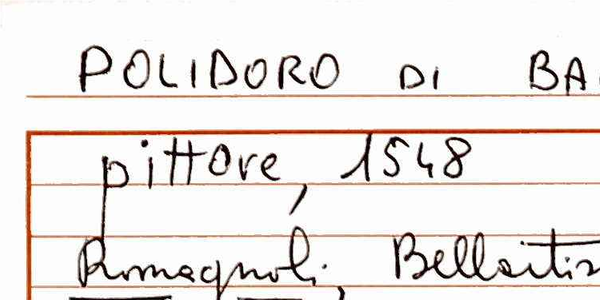 POLIDORO DI BA
pittore, 1548
Romagnoli, Bellarti